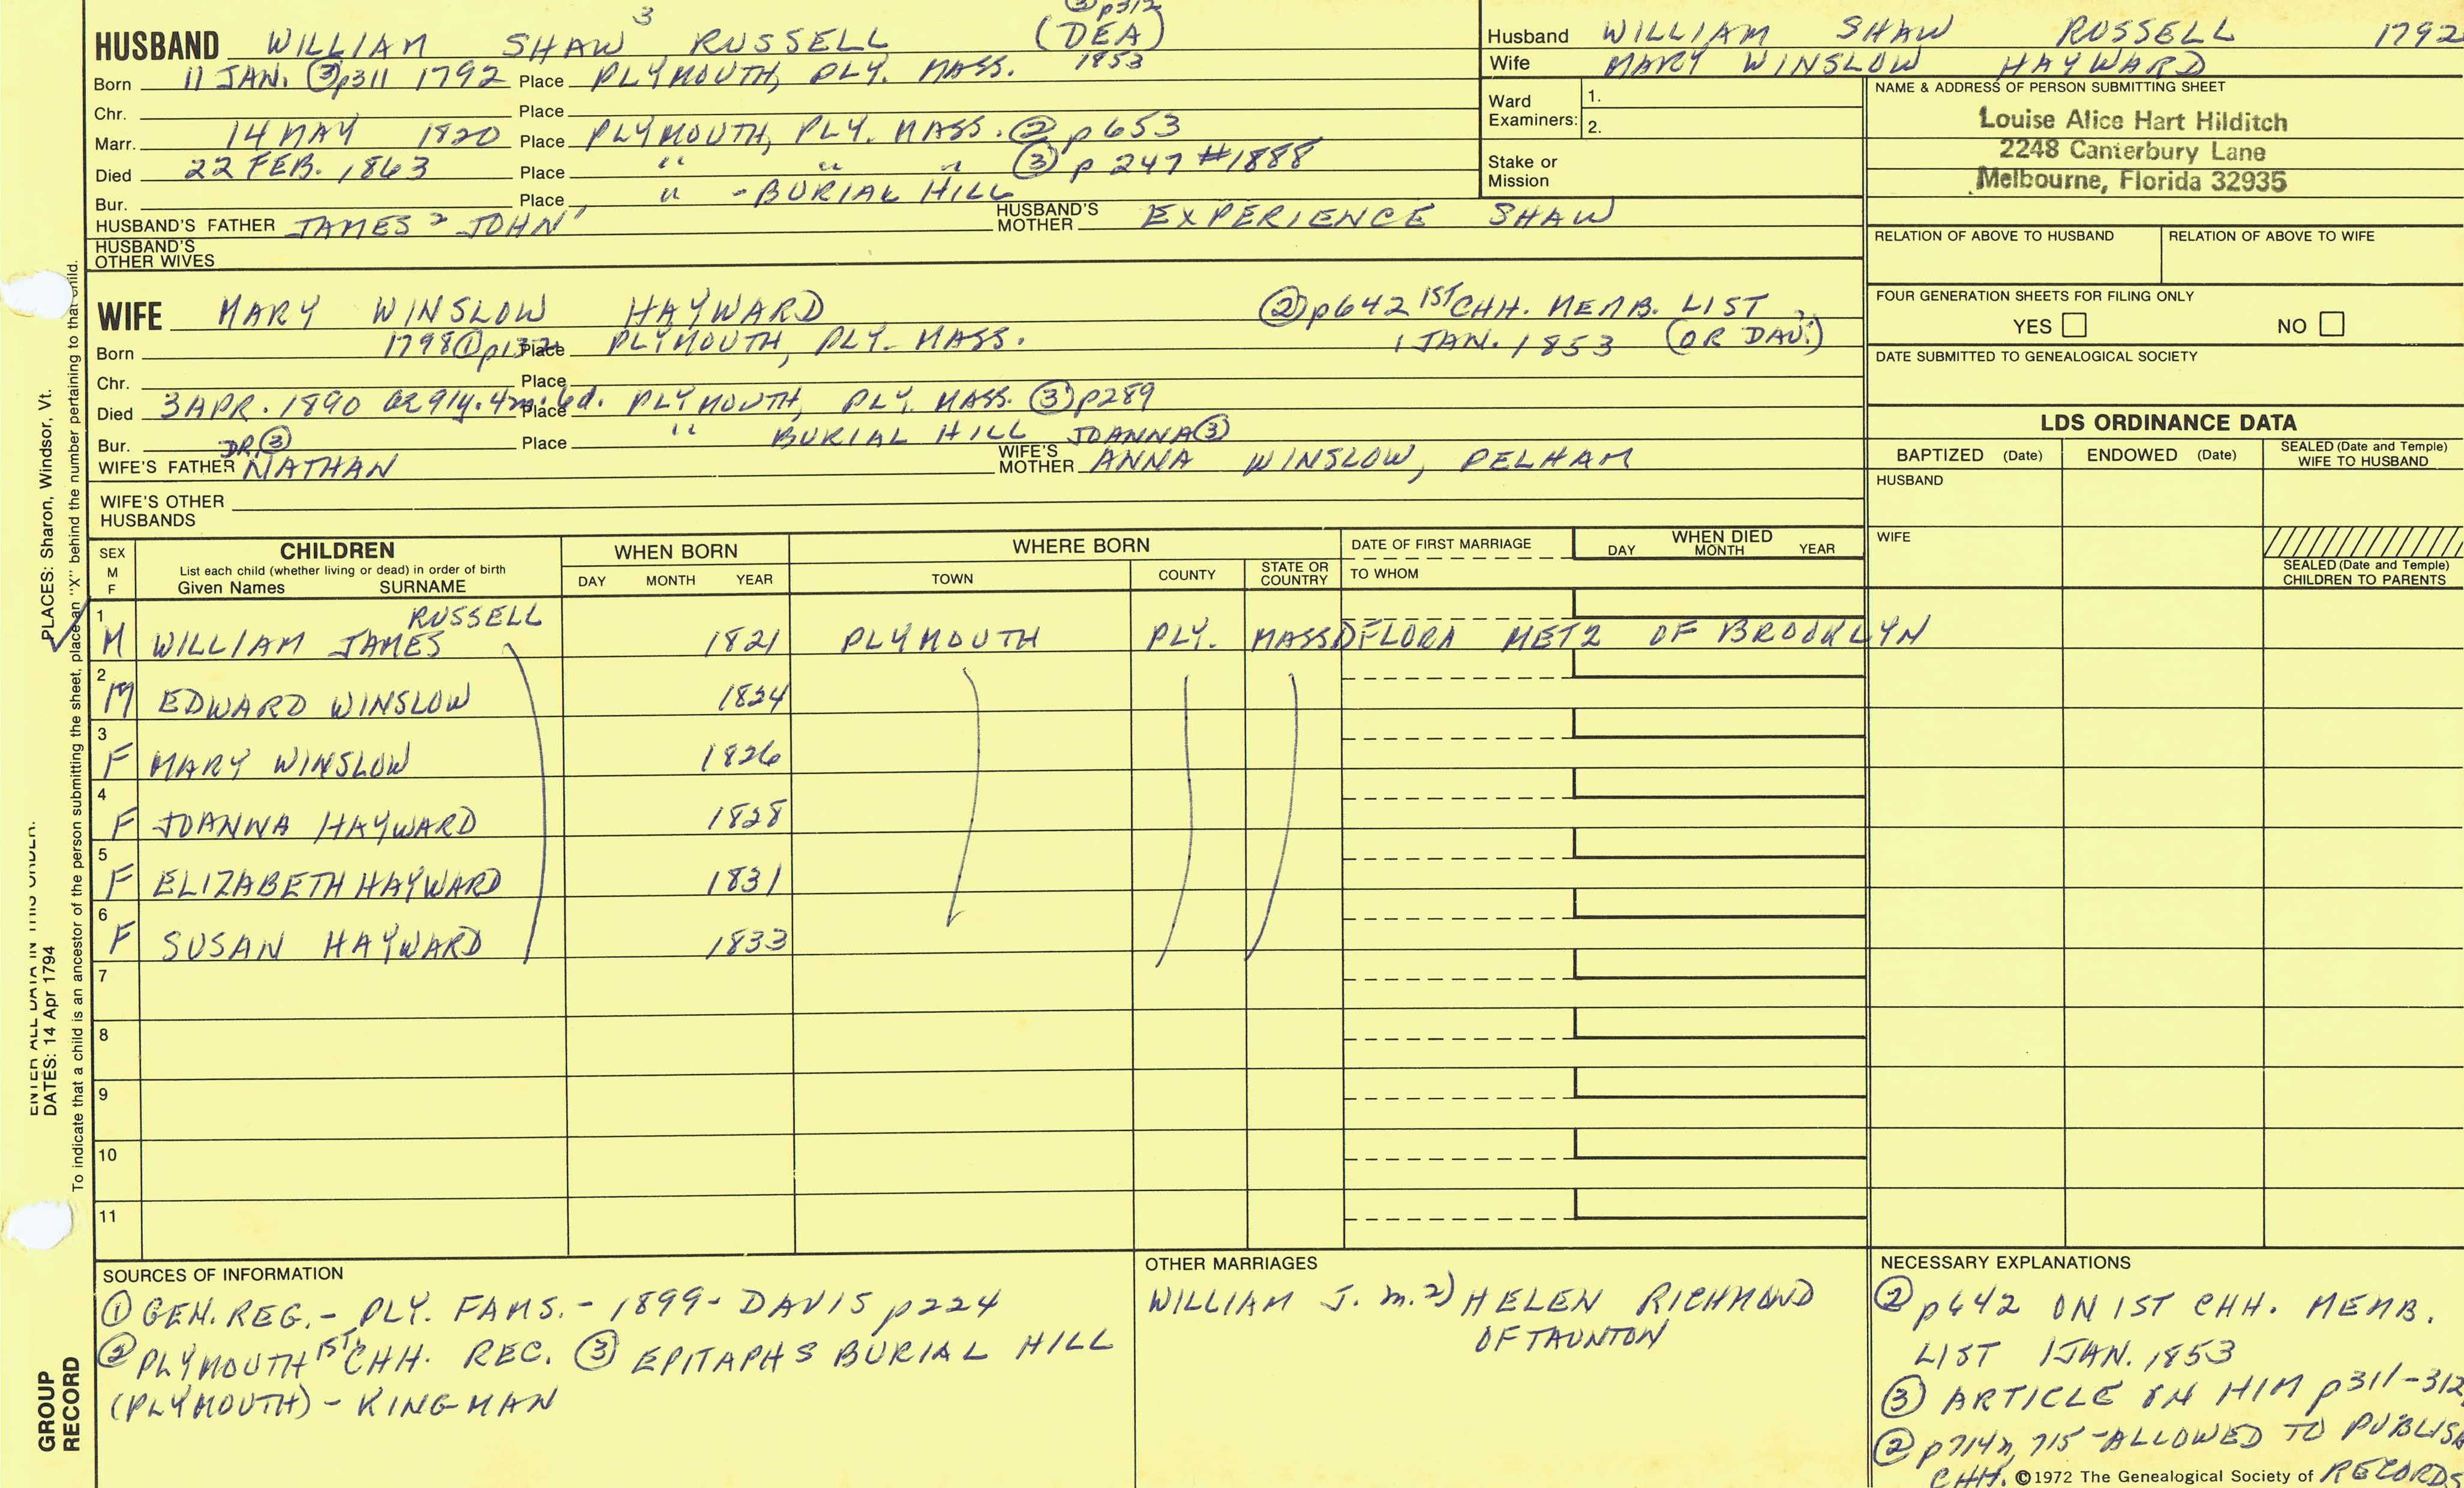 3
p312
HUSBAND WILLIAM SHAW RUSSELL (DEA)
1853
Born 11 JAN. ③p311 1792 Place PLYMOUTH, PLY. MASS.
Chr. Place
Marr. 14 MAY 1820 Place PLYMOUTH, PLY. MASS. ② p653
Died 22 FEB. 1863 Place " " " ③ p 247 #1888
Bur. Place " - BURIAL HILL
HUSBAND'S FATHER JAMES 2 JOHN' HUSBAND'S MOTHER EXPERIENCE SHAW
HUSBAND'S OTHER WIVES
Husband WILLIAM SHAW RUSSELL 1792
Wife MARY WINSLOW HAYWARD
Ward Examiners: 1.
2.
Stake or Mission
NAME & ADDRESS OF PERSON SUBMITTING SHEET
Louise Alice Hart Hilditch
2248 Canterbury Lane
Melbourne, Florida 32935
RELATION OF ABOVE TO HUSBAND RELATION OF ABOVE TO WIFE
FOUR GENERATION SHEETS FOR FILING ONLY
YES NO
DATE SUBMITTED TO GENEALOGICAL SOCIETY
WIFE MARY WINSLOW HAYWARD ②p642 1ST CHH. MEMB. LIST
Born 1798 ①p132 Place PLYMOUTH, PLY. MASS. 1 JAN. 1853 (OR DAU.)
Chr. Place
Died 3 APR. 1890 ae 91y. 4m. 6d. Place PLYMOUTH, PLY. MASS. ③p289
Bur. Place " BURIAL HILL JOANNA③
DR.③
WIFE'S FATHER NATHAN WIFE'S MOTHER ANNA WINSLOW, PELHAM
WIFE'S OTHER HUSBANDS
LDS ORDINANCE DATA
BAPTIZED (Date) ENDOWED (Date) SEALED (Date and Temple) WIFE TO HUSBAND
HUSBAND
WIFE
SEALED (Date and Temple) CHILDREN TO PARENTS
SEX M F CHILDREN WHEN BORN WHERE BORN DATE OF FIRST MARRIAGE WHEN DIED
List each child (whether living or dead) in order of birth
Given Names SURNAME DAY MONTH YEAR TOWN COUNTY STATE OR COUNTRY TO WHOM DAY MONTH YEAR
RUSSELL
1 M WILLIAM JAMES 1821 PLYMOUTH PLY. MASS ① FLORA METZ OF BROOKLYN
2 M EDWARD WINSLOW 1824
3 F MARY WINSLOW 1826
4 F JOANNA HAYWARD 1828
5 F ELIZABETH HAYWARD 1831
6 F SUSAN HAYWARD 1833
7
8
9
10
11
SOURCES OF INFORMATION
① GEN. REG. - PLY. FAMS. - 1899 - DAVIS p224
② PLYMOUTH 1ST CHH. REC. ③ EPITAPHS BURIAL HILL
(PLYMOUTH) - KINGMAN
OTHER MARRIAGES
WILLIAM J. m. 2) HELEN RICHMOND
OF TAUNTON
NECESSARY EXPLANATIONS
② p642 ON 1ST CHH. MEMB.
LIST 1 JAN. 1853
③ ARTICLE ON HIM p311-312
② p714n, 715 - ALLOWED TO PUBLISH
CHH. ©1972 The Genealogical Society of RECORDS
PLACES: Sharon, Windsor, Vt.
ENTER ALL DATA IN THIS ORDER:
DATES: 14 Apr 1794
To indicate that a child is an ancestor of the person submitting the sheet, place an "X" behind the number pertaining to that child.
GROUP
RECORD